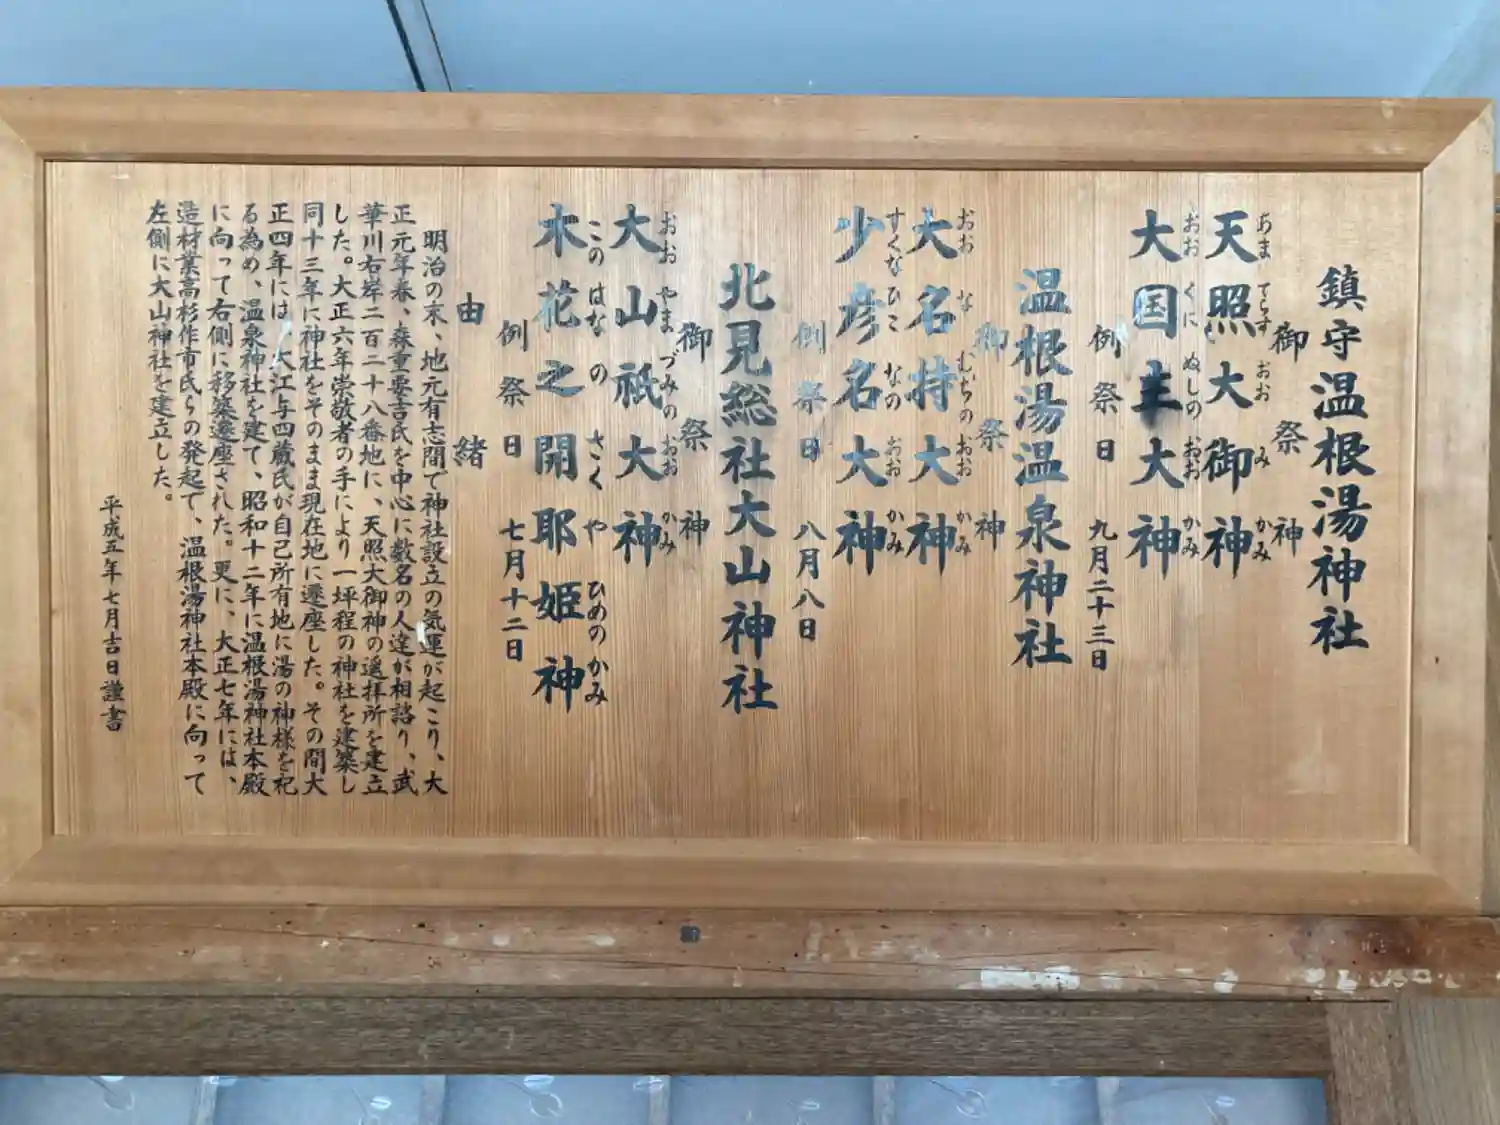 鎮守温根湯神社
御祭神
あまてらすおおみかみ
天照大御神
おおくにぬしのおおかみ
大国主大神
例祭日 九月二十三日
温根湯温泉神社
御祭神
おおなむぢのおおかみ
大名持大神
すくなひこなのおおかみ
少彦名大神
例祭日 八月八日
北見総社大山神社
御祭神
おおやまづみのおおかみ
大山祇大神
このはなのさくやひめのかみ
木花之開耶姫神
例祭日 七月十二日
由緒
明治の末、地元有志間で神社設立の気運が起こり、大
正元年春、森重要吉氏を中心に数名の人達が相諮り、武
華川右岸二百二十八番地に、天照大御神の遥拝所を建立
した。大正六年崇敬者の手により一坪程の神社を建築し
同十三年に神社をそのまま現在地に遷座した。その間大
正四年には、大江与四蔵氏が自己所有地に湯の神様を祀
る為め、温泉神社を建て、昭和十二年に温根湯神社本殿
に向って右側に移築遷座された。更に、大正七年には、
造材業高杉作市氏らの発起で、温根湯神社本殿に向って
左側に大山神社を建立した。
平成五年七月吉日謹書